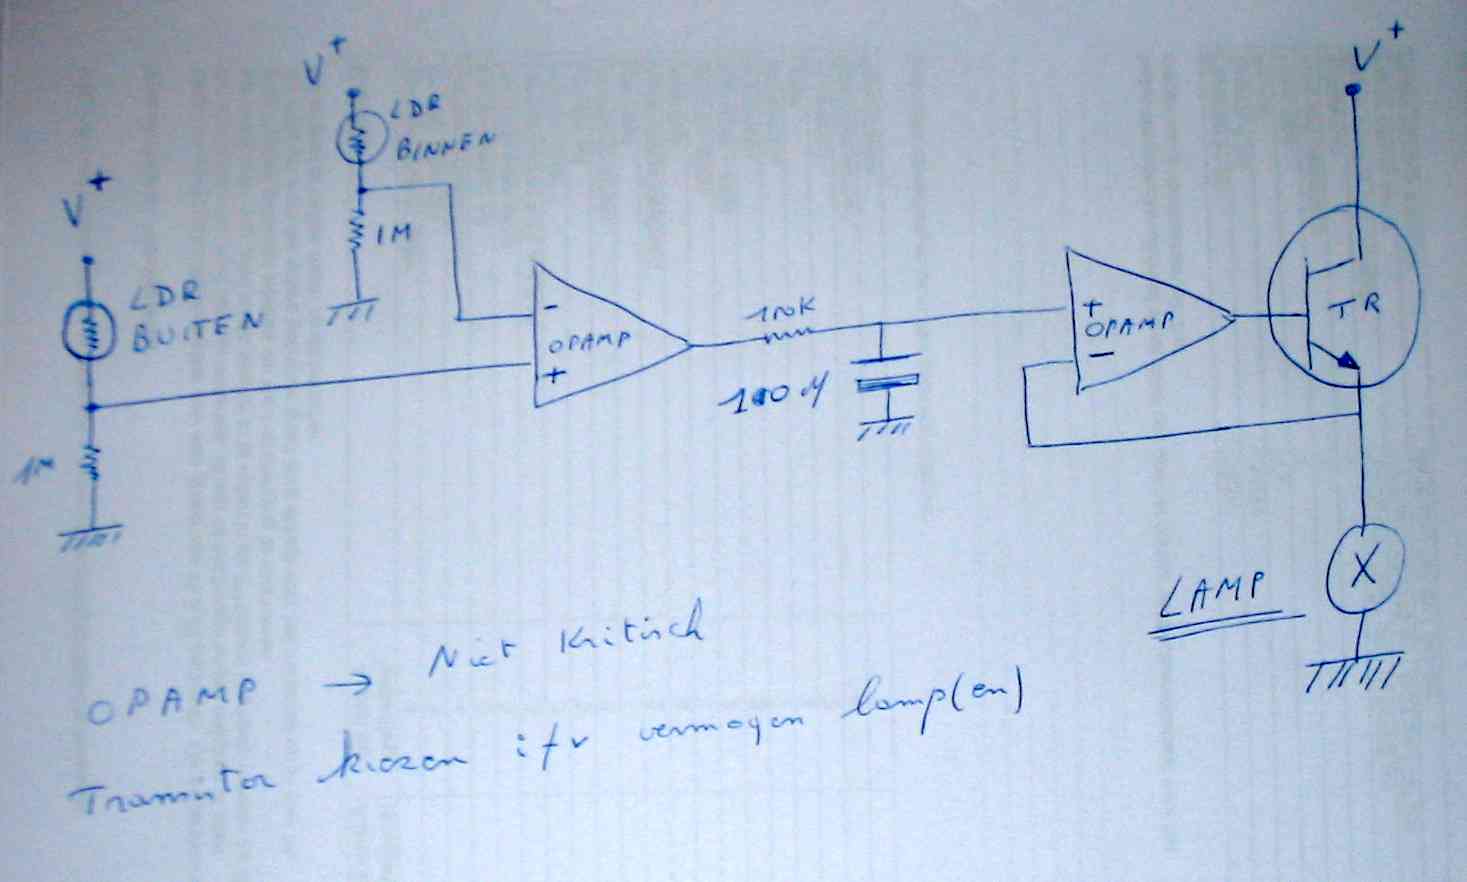 V+
LDR
BINNEN
1M
V+
LDR
BUITEN
1M
-
OPAMP
+
100K
100 µ
+
OPAMP
-
V+
TR
X
LAMP
OPAMP → Niet Kritisch
Transistor kiezen ifv vermogen lamp(en)